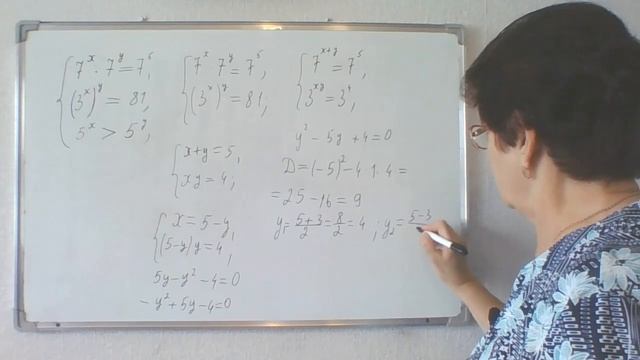 7ˣ · 7ʸ = 7⁵,
(3ˣ)ʸ = 81,
5ˣ > 5ʸ,
7ˣ 7ʸ = 7⁵,
(3ˣ)ʸ = 81,
7ˣ⁺ʸ = 7⁵,
3ˣʸ = 3⁴,
x+y = 5,
xy = 4,
x = 5-y,
(5-y)y = 4,
5y - y² - 4 = 0
- y² + 5y - 4 = 0
y² - 5y + 4 = 0
D = (-5)² - 4 · 1 · 4 =
= 25 - 16 = 9
y₁ = (5+3)/2 = 8/2 = 4 ; y₂ = 5-3